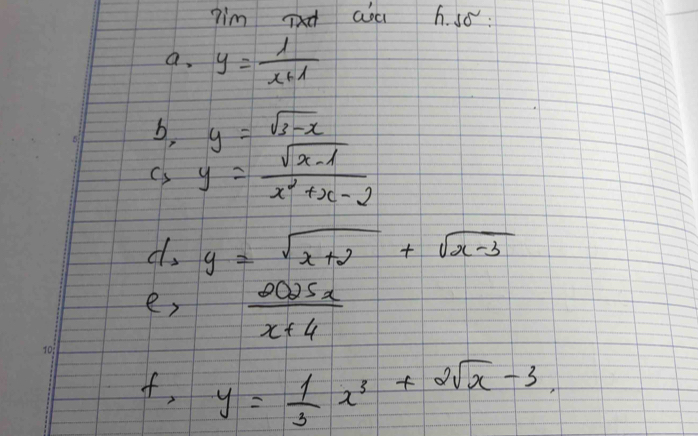 Tìm Txđ của h.số:
a. y = 1/(x+1)
b, y = √(3-x)
c, y = √(x-1)/(x² + x - 2)
d, y = √(x+2) + √(x-3)
e, 2025x/(x+4)
f, y = 1/3 x³ + 2√x - 3.
5
10